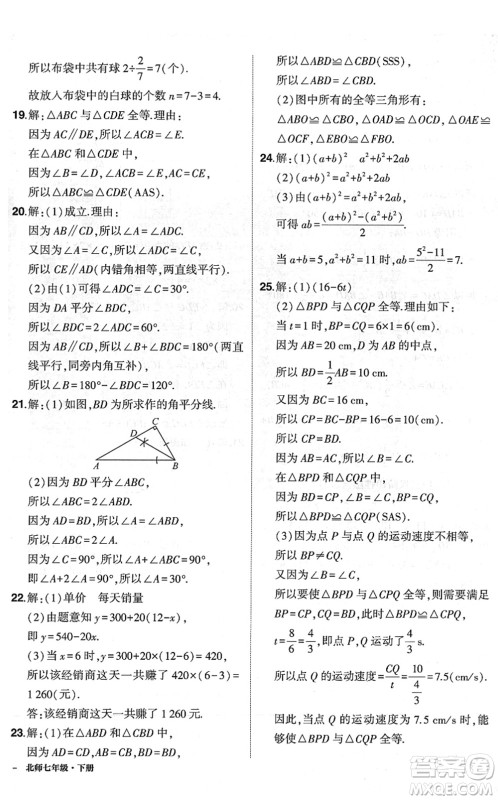 所以布袋中共有球 2÷2/7=7(个).
故放入布袋中的白球的个数 n=7-3=4.
19.解:△ABC 与△CDE 全等.理由:
因为 AC∥DE,所以∠ACB=∠E.
在△ABC 和△CDE 中,
因为∠ACB=∠E,∠A=∠DCE,AB=CD,
所以△ABC≌△CDE(AAS).
20.解:(1)成立.理由:
因为 AB∥CD,所以∠A=∠ADC.
又因为∠A=∠C,所以∠ADC=∠C.
所以 CE∥AD(内错角相等,两直线平行).
(2)由(1)可得∠ADC=∠C=30°.
因为 DA 平分∠BDC,
所以∠BDC=2∠ADC=60°.
因为 AB∥DC,所以∠B+∠BDC=180°(两直
线平行,同旁内角互补),
所以∠B=180°-∠BDC=120°.
21.解:(1)如图,BD 为所求作的角平分线.
C
D
A
B
(2)因为 BD 平分∠ABC,
所以∠ABC=2∠ABD.
因为 AD=BD,所以∠A=∠ABD,
所以∠ABC=2∠A.
因为∠C=90°,所以∠A+∠ABC=90°,
即∠A+2∠A=90°,所以∠A=30°.
22.解:(1)单价 每天销量
(2)由题意知 y=300+20(12-x),
即 y=540-20x.
(3)当 x=6 时,y=300+20×(12-6)=420,
所以该经销商一天共赚了 420×(6-3)=
1 260(元).
答:该经销商这一天共赚了 1 260 元.
23.解:(1)因为 AB=CB,BD=BD,AD=CD,
北师七年级·下册
所以△ABD≌△CBD(SSS),
所以∠ABD=∠CBD.
(2)图中所有的全等三角形有:
△ABD≌△CBD,△ABO≌△CBO,
△AOD≌△COD,△AOE≌△COF.
24.解:(1)(a+b)² a²+b²+2ab
(2)(a+b)²=a²+b²+2ab
(3)由(a+b)²=a²+b²+2ab,
可得 ab=((a+b)²-(a²+b²))/2,
当 a+b=5,a²+b²=11 时,ab=(5²-11)/2=7.
25.解:(1)(16-6t)
(2)△BPD 与△CQP 全等.理由如下:
当 t=1 时,BP=CQ=6×1=6(cm).
因为 AB=20 cm,D 为 AB 的中点,
所以 BD=1/2AB=10 cm.
又因为 BC=16 cm,
所以 CP=BC-BP=16-6=10(cm),
所以 CP=BD.
因为 AB=AC,所以∠B=∠C.
在△BPD 和△CQP 中,
因为 BD=CP,∠B=∠C,BP=CQ,
所以△BPD≌△CQP(SAS).
(3)因为点 P 与点 Q 的运动速度不相等,
所以 BP≠CQ.
又因为∠B=∠C,
所以若△BPD 与△CQP 全等,只能满足
BP=CP,CQ=BD,即△BPD≌△CPQ,
t=8/6=4/3,即点 P,Q 运动了 4/3 s.
所以点 Q 的运动速度为 CQ/t=10/(4/3)=7.5(cm/s).
因此,当点 Q 的运动速度为 7.5 cm/s 时,
能使△BPD 与△CQP 全等.